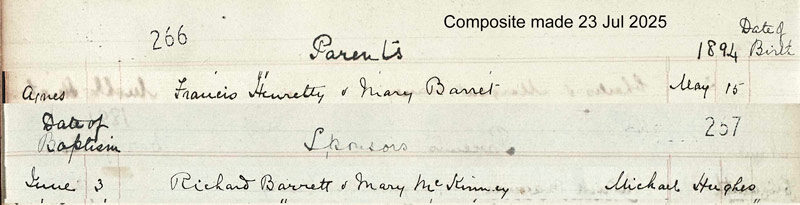 Composite made 23 Jul 2025
266 Date of
Parents 1894 Birth
Agnes Francis Henretty & Mary Barret May 15
Date of 267
Baptism Sponsors
June 3 Richard Barrett & Mary McKinney Michael Hughes